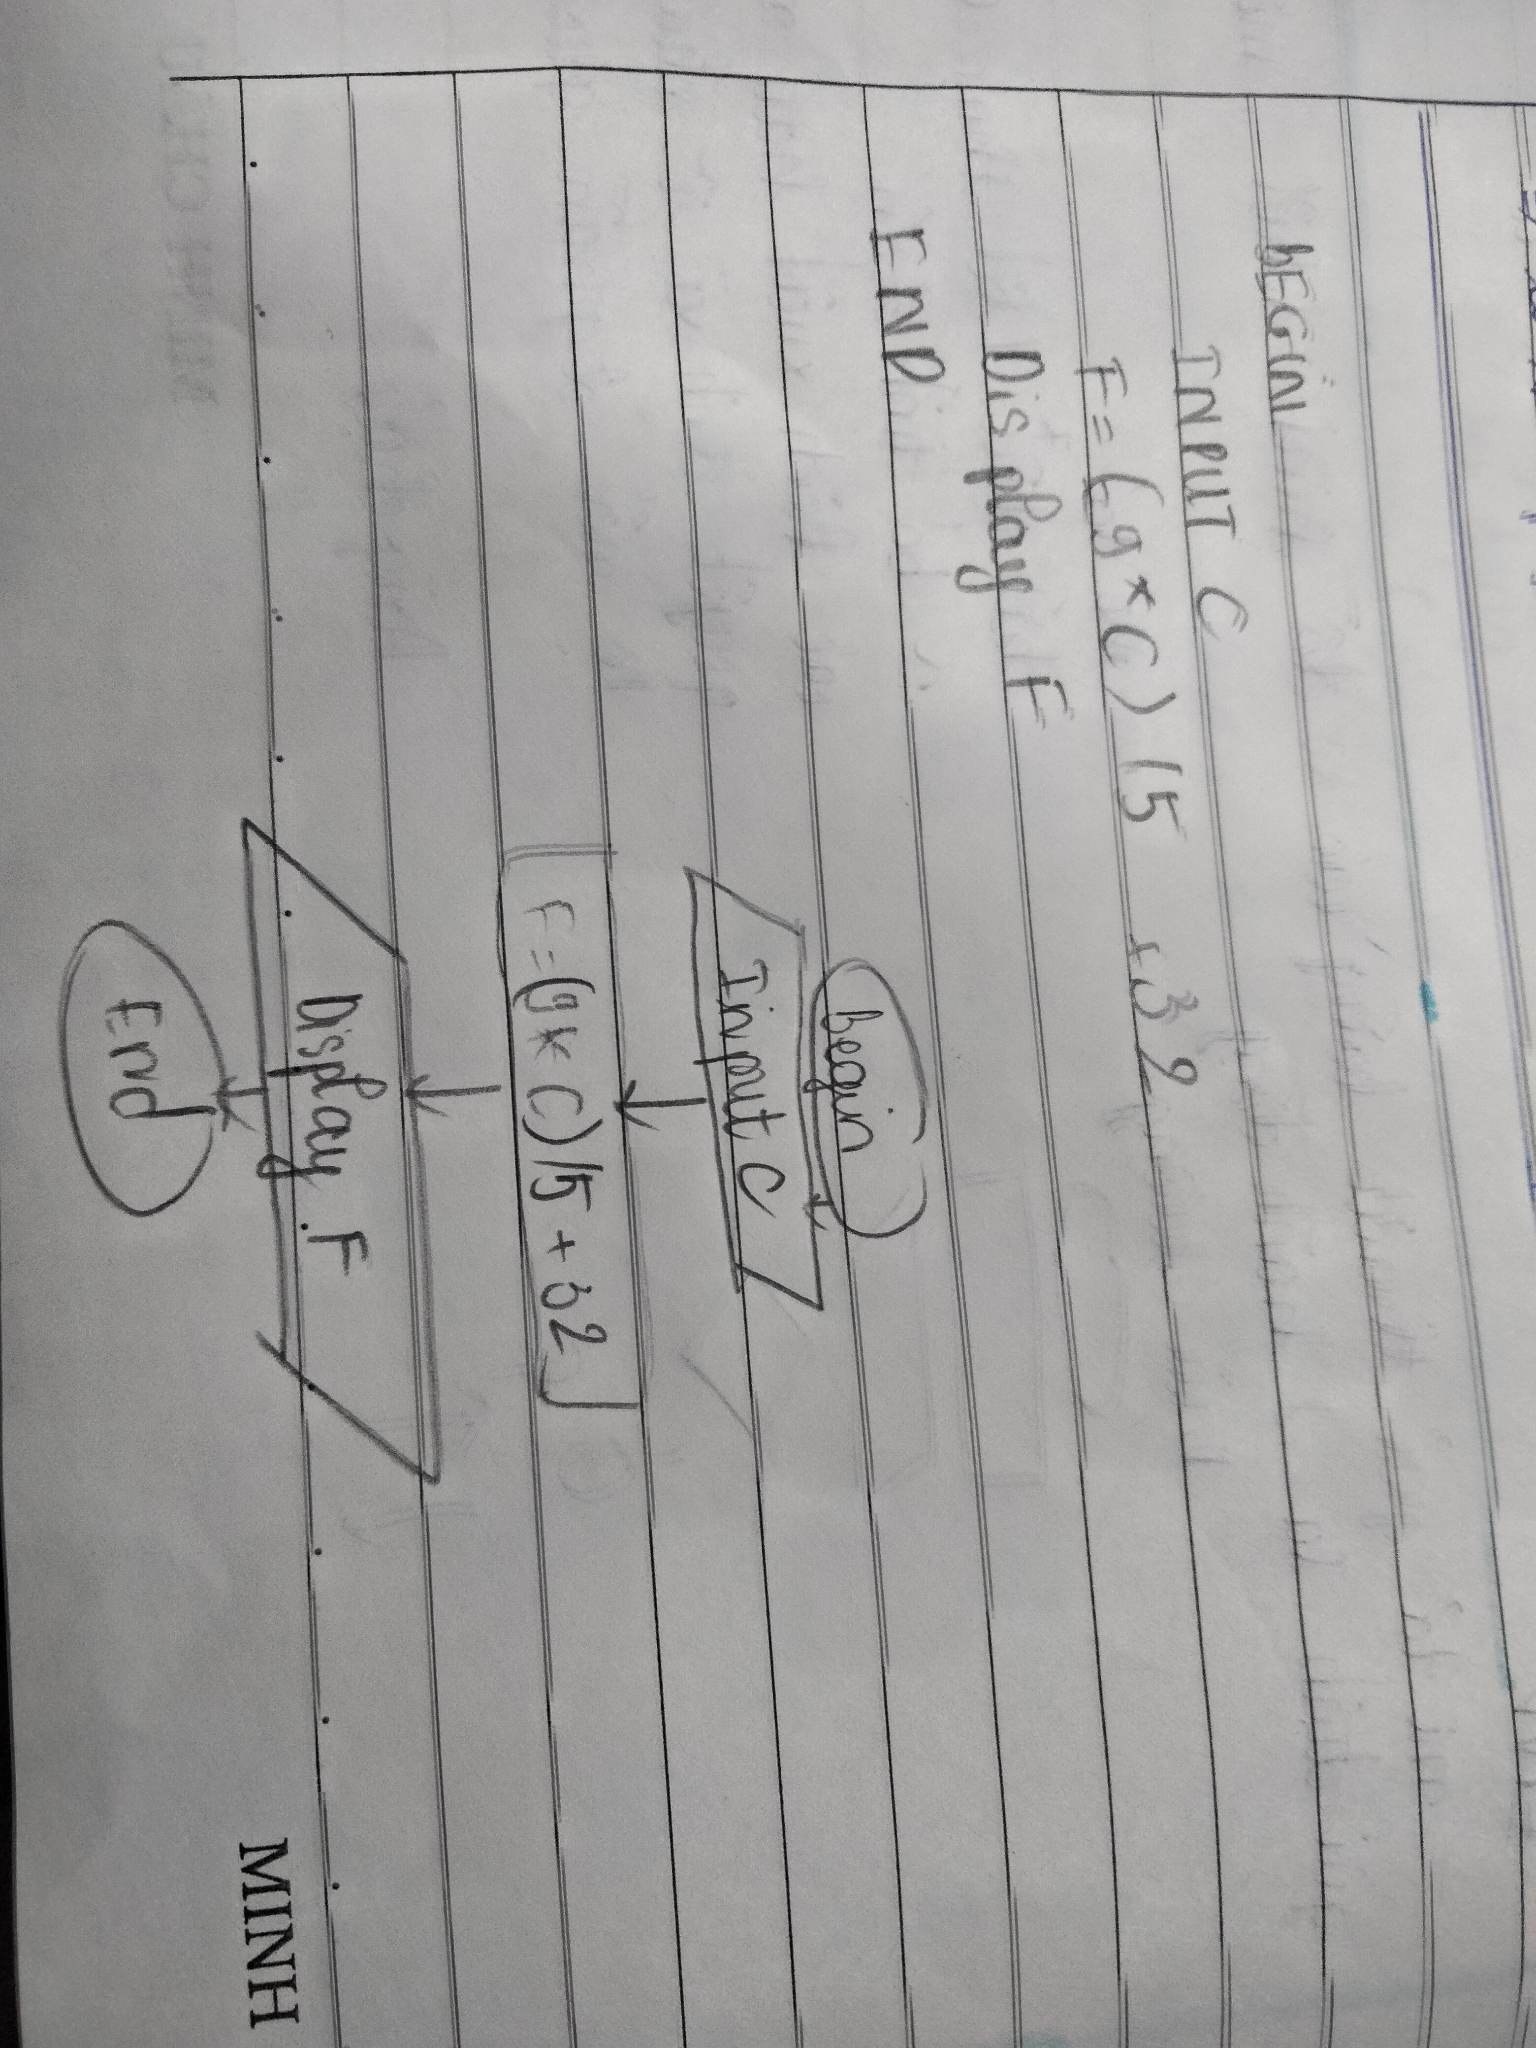 bEGIN
INPUT C
F = (9*C) / 5 + 32
Display F
END
begin
Input C
F = (9 * C) / 5 + 32
Display F
End
MINH